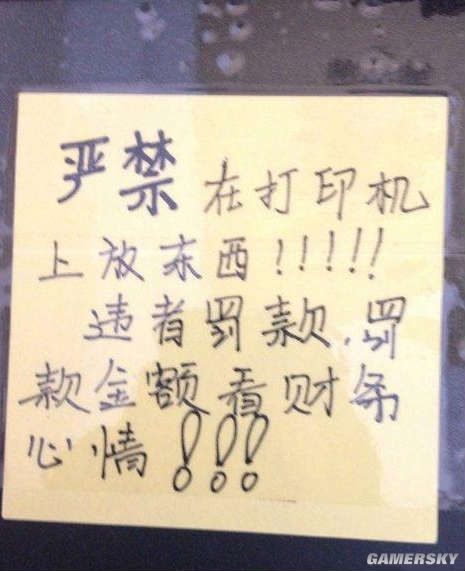 严禁在打印机
上放东西!!!!!
违者罚款.罚
款金额看财务
心情!!!
GAMERSKY